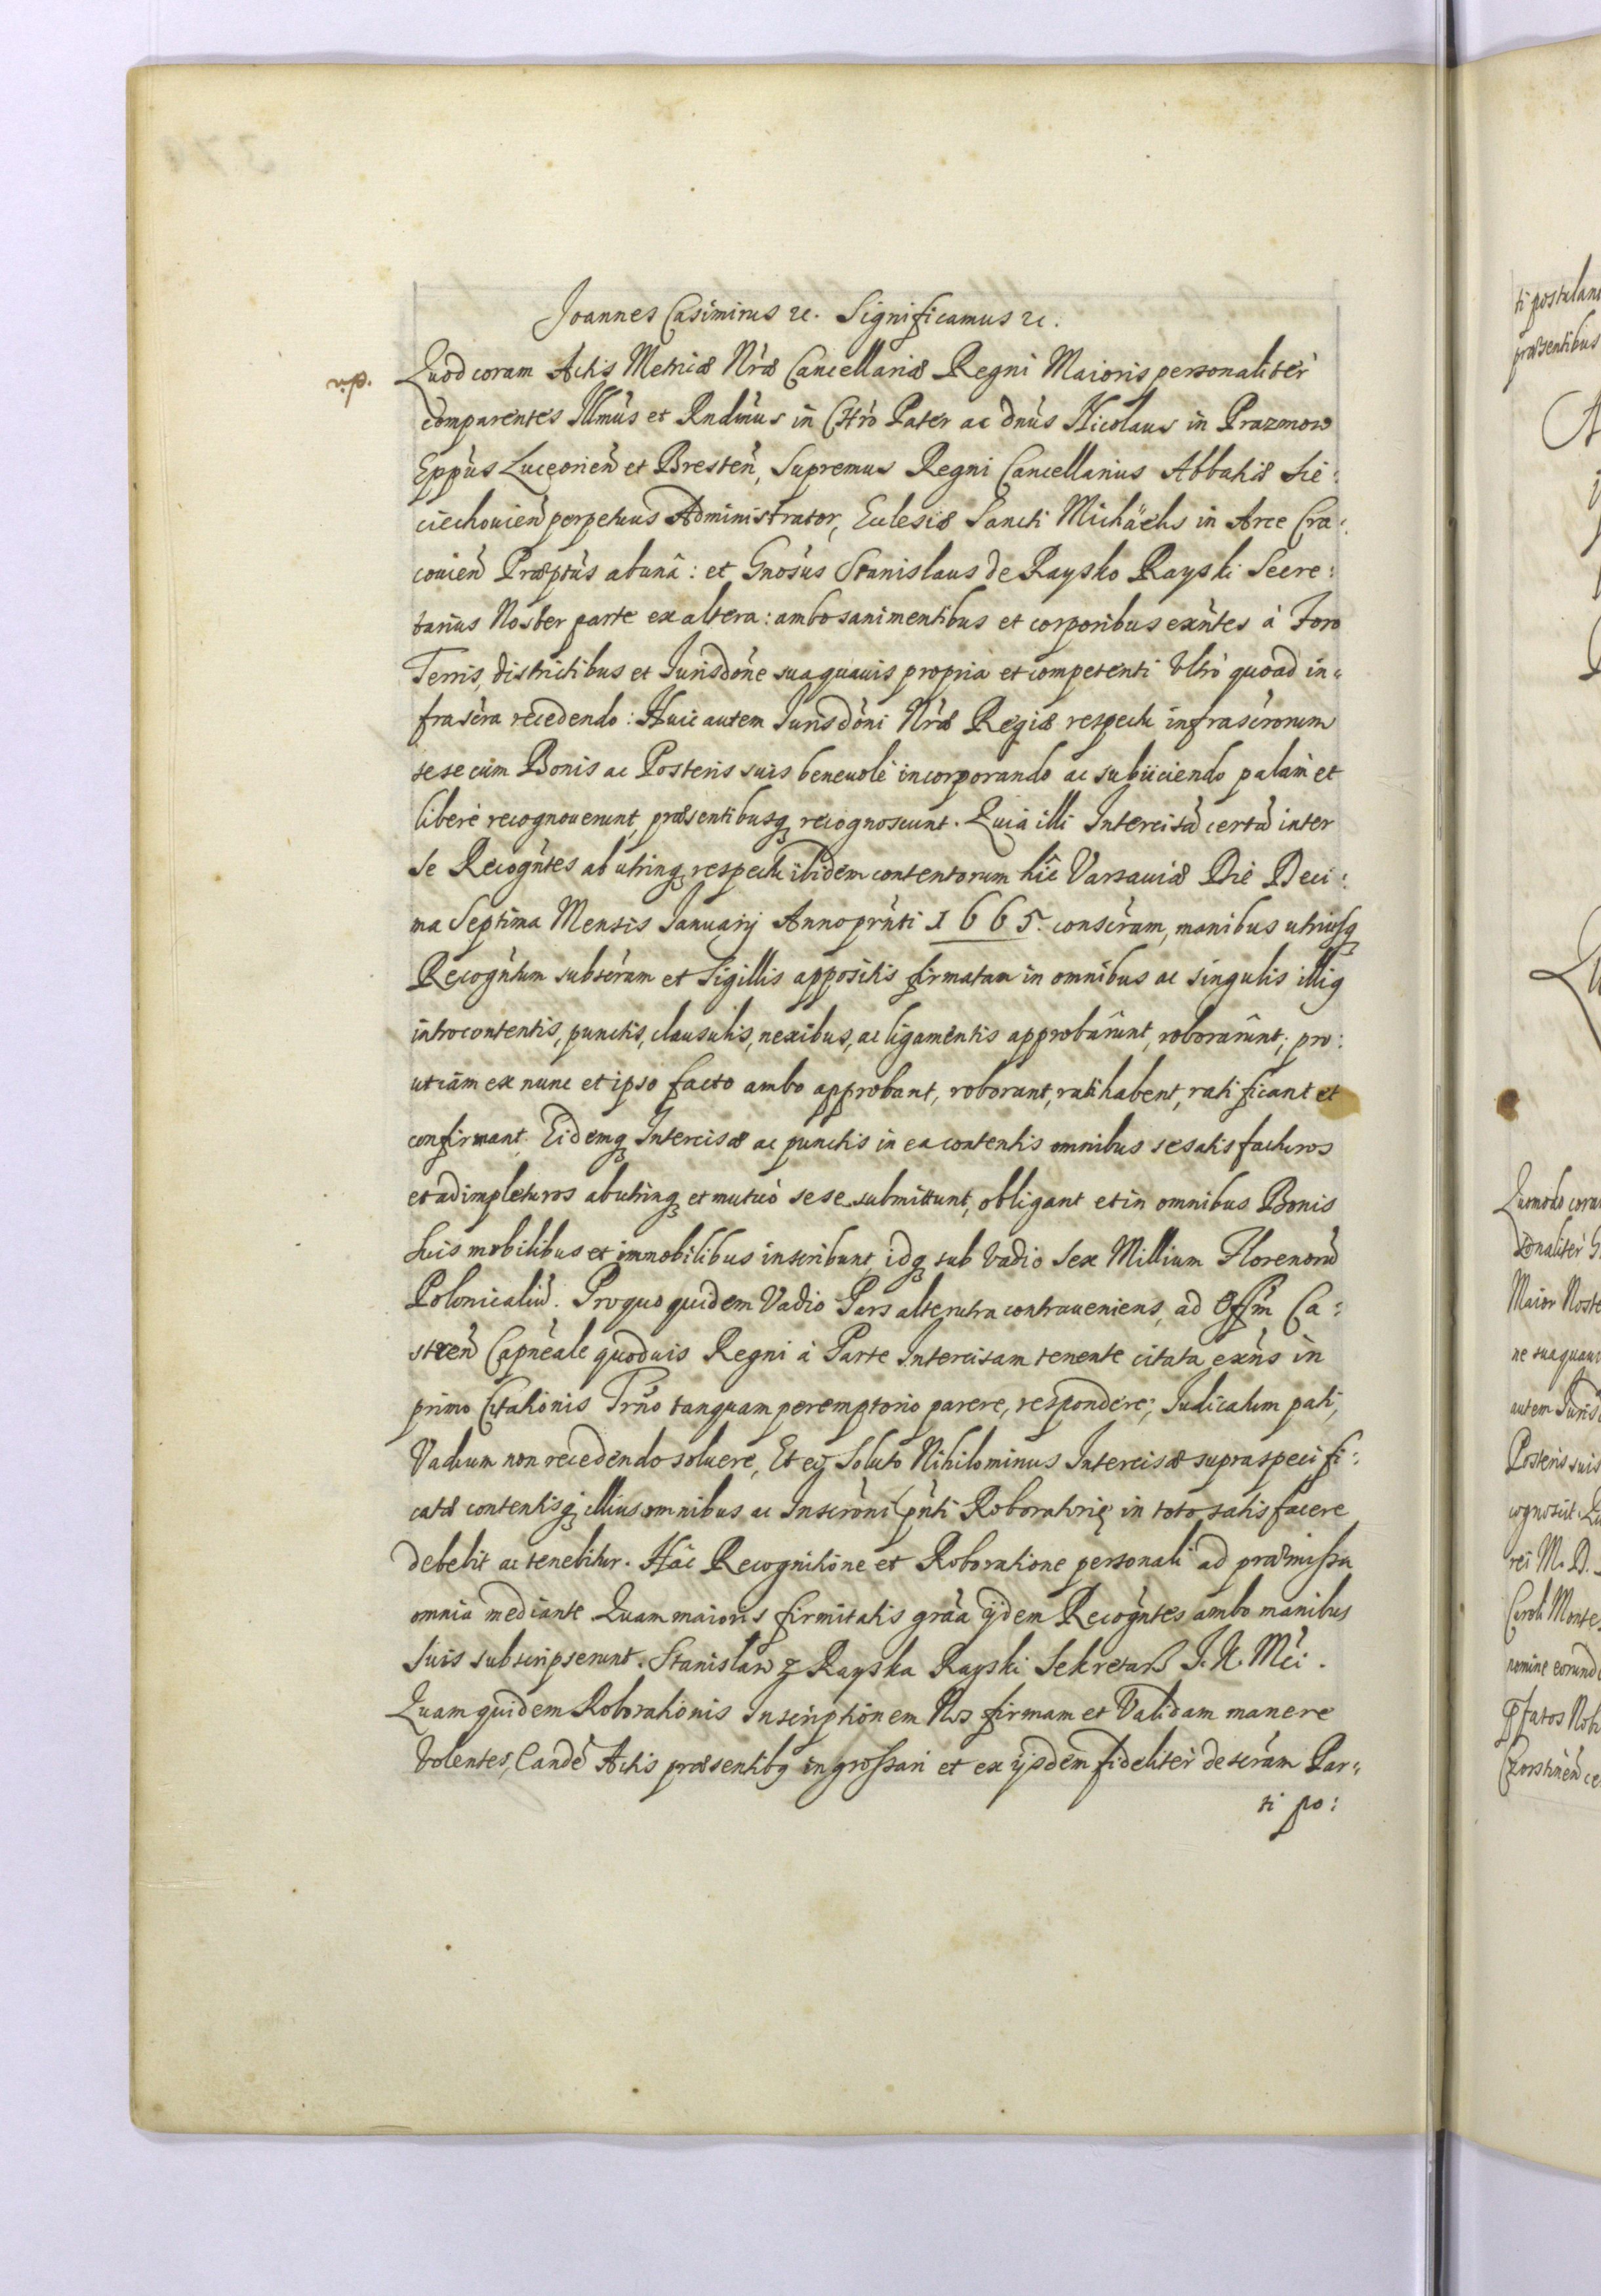 Joannes Casimirus etc. Significamus etc.
v.p. Quod coram Actis Metricæ Nr̃æ Cancellariæ Regni Maioris personaliter
comparentes Illm̃us et Rndm̃us in Chr̃o Pater ac Dn̄us Nicolaus in Prazmow
Epp̃us Luceorien̄ et Bresten̄, Supremus Regni Cancellarius Abbatiæ Sie:
ciechouien̄ perpetuus Administrator, Ecclesiæ Sancti Michäelis in Arce Cra:
couien̄ Præptũs ab unâ: et Gnõsus Stanislaus de Raysko Rayski Secre:
tarius Noster parte ex altera: ambo sani mentibus et corporibus exñtes à Foro
Terris, districtibus et Jurisdõne sua quauis propria et competenti Vltrò quoad in:
frascr̃a recedendo: Huic autem Jurisdõni Nr̃æ Regiæ respectu infrascr̃orum
sese cum Bonis ac Posteris suis beneuolè incorporando ac subiiciendo palàm et
liberè recognouerunt, præsentibusq₃ recognoscunt. Quia illi Intercisã certã inter
se Recogñtes ab utrinq₃ respectu ibidem contentorum hîc Varsauiæ Die Deci:
ma Septima Mensis Januarij Anno prñti 1665. conscr̃am, manibus utriusq₃
Recogñtium subscr̃am et Sigillis appositis firmatam in omnibus ac singulis illiq
introcontentis, punctis, clausulis, nexibus, ac ligamentis approbârunt, roborârunt; pro:
ut iãm ex nunc et ipso facto ambo approbant, roborant, ratihabent, ratificant et
confirmant. Eidemq₃ Intercisæ ac punctis in ea contentis omnibus se satisfacturos
et adimpleturos ab utrinq₃ et mutuò sese submittunt, obligant et in omnibus Bonis
Suis mobilibus et immobilibus inscribunt, idq₃ sub Vadio Sex Millium Florenorũ
Polonicaliũ. Pro quo quidem Vadio Pars alterutra contraueniens, ad Offm̃ Ca:
stren̄ Capñeale quoduis Regni à Parte Intercisam tenente citata, exñs in
primo Citationis Trño tanquam peremptorio parere, respondere; Judicatum pati,
Vadium non recedendo soluere, Et eo Soluto Nihilominus Intercisæ supraspecifi:
catæ contentisq₃ illius omnibus ac Inscrõni prñti Roboratoriæ in toto satisfacere
debebit ac tenebitur. Hâc Recognitione et Roboratione personali ad præmissa
omnia mediante Quam maioris firmitatis grãa ijdem Recogñtes ambo manibus
Suis subscripserunt. Stanislaw z Rayska Rayski Sekretarß J. K. Mći.
Quam quidem Roborationis Inscriptionem Nos firmam et Validam manere
Volentes, Eandẽ Actis præsentibꝯ ingrossari et ex ijsdem fideliter descr̃am Par:
ti po: